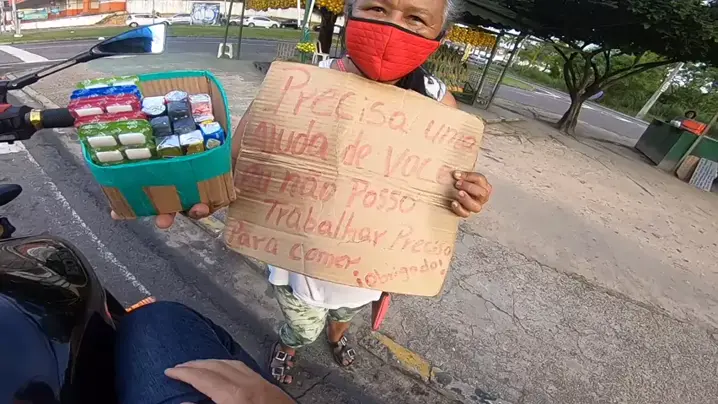 Precisa uma
ajuda de Voce
Eu não Posso
Trabalhar Preciso
Para comer ¡obrigado!